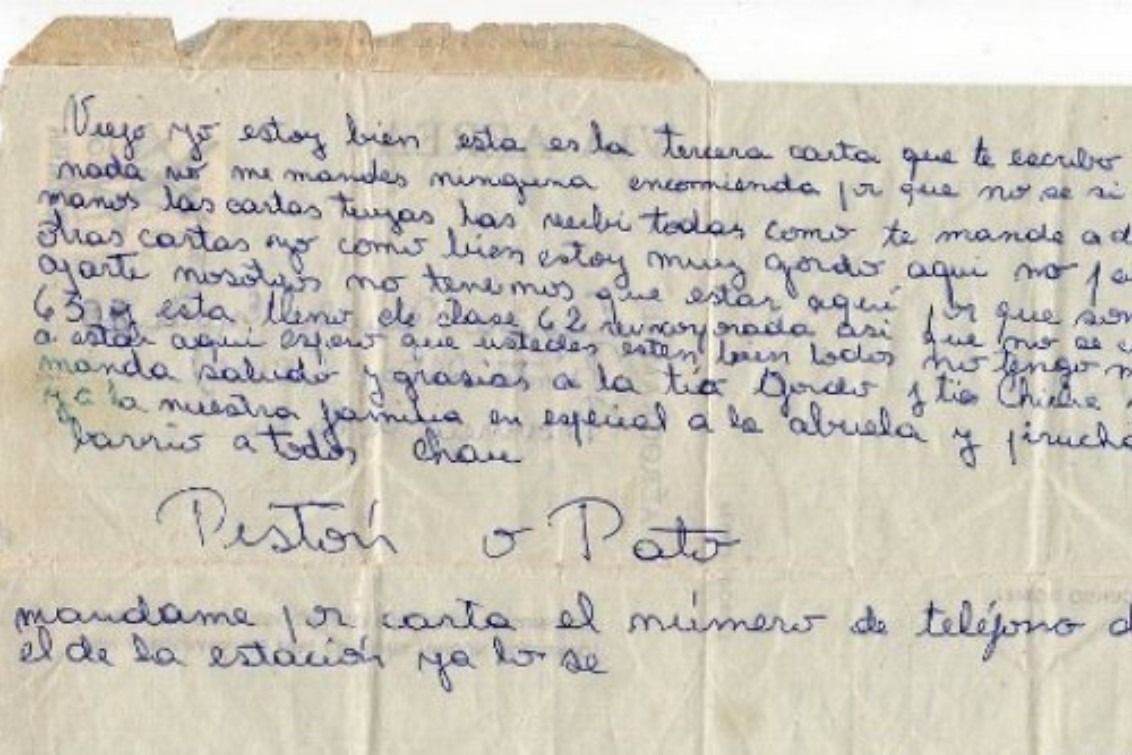 Viejo yo estoy bien esta es la tercera carta que te escribo
nada no me mandes ninguna encomienda por que no se si
manos las cartas tuyas las recibi todas como te mande a d
otras cartas yo como bien estoy muy gordo aqui no
nosotros no tenemos que estar aquí por que som
63 y esta lleno de clase 62 asi que no se c
a estar aqui espero que ustedes esten bien todos no tengo m
manda saludo y grasias a la tia Gorda y tia
y a la nuestra familia en especial a la abuela y pirucho
barrio a todos chau
Pistón o Pato
mandame por carta el número de teléfono d
el de la estación ya lo se